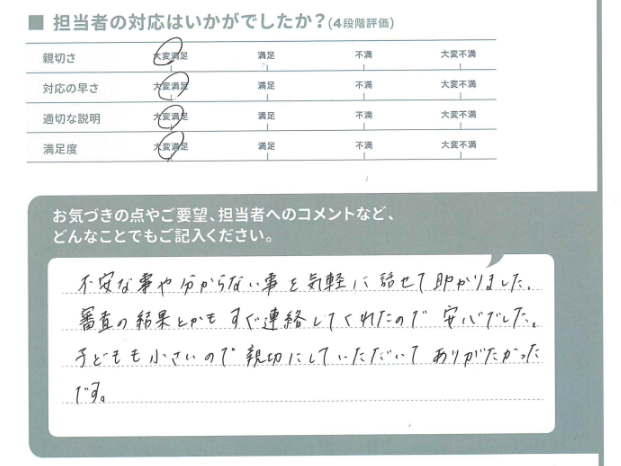 ■ 担当者の対応はいかがでしたか?(4段階評価)
親切さ 大変満足 満足 不満 大変不満
対応の早さ 大変満足 満足 不満 大変不満
適切な説明 大変満足 満足 不満 大変不満
満足度 大変満足 満足 不満 大変不満
お気づきの点やご要望、担当者へのコメントなど、
どんなことでもご記入ください。
不安な事や分からない事を気軽に話せて助かりました。
審査の結果とかもすぐ連絡してくれたので安心でした。
子どもも小さいので親切にしていただいてありがたかった
です。